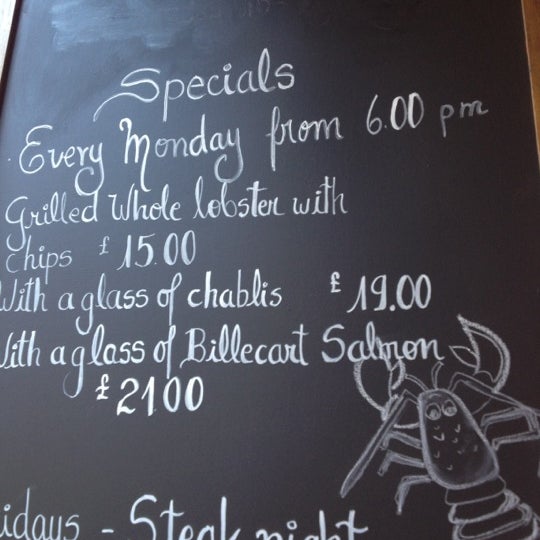 Specials
Every Monday from 6.00 pm
Grilled Whole lobster with
chips £ 15.00
With a glass of chablis £ 19.00
With a glass of Billecart Salmon
£ 21.00
idays - Steak night